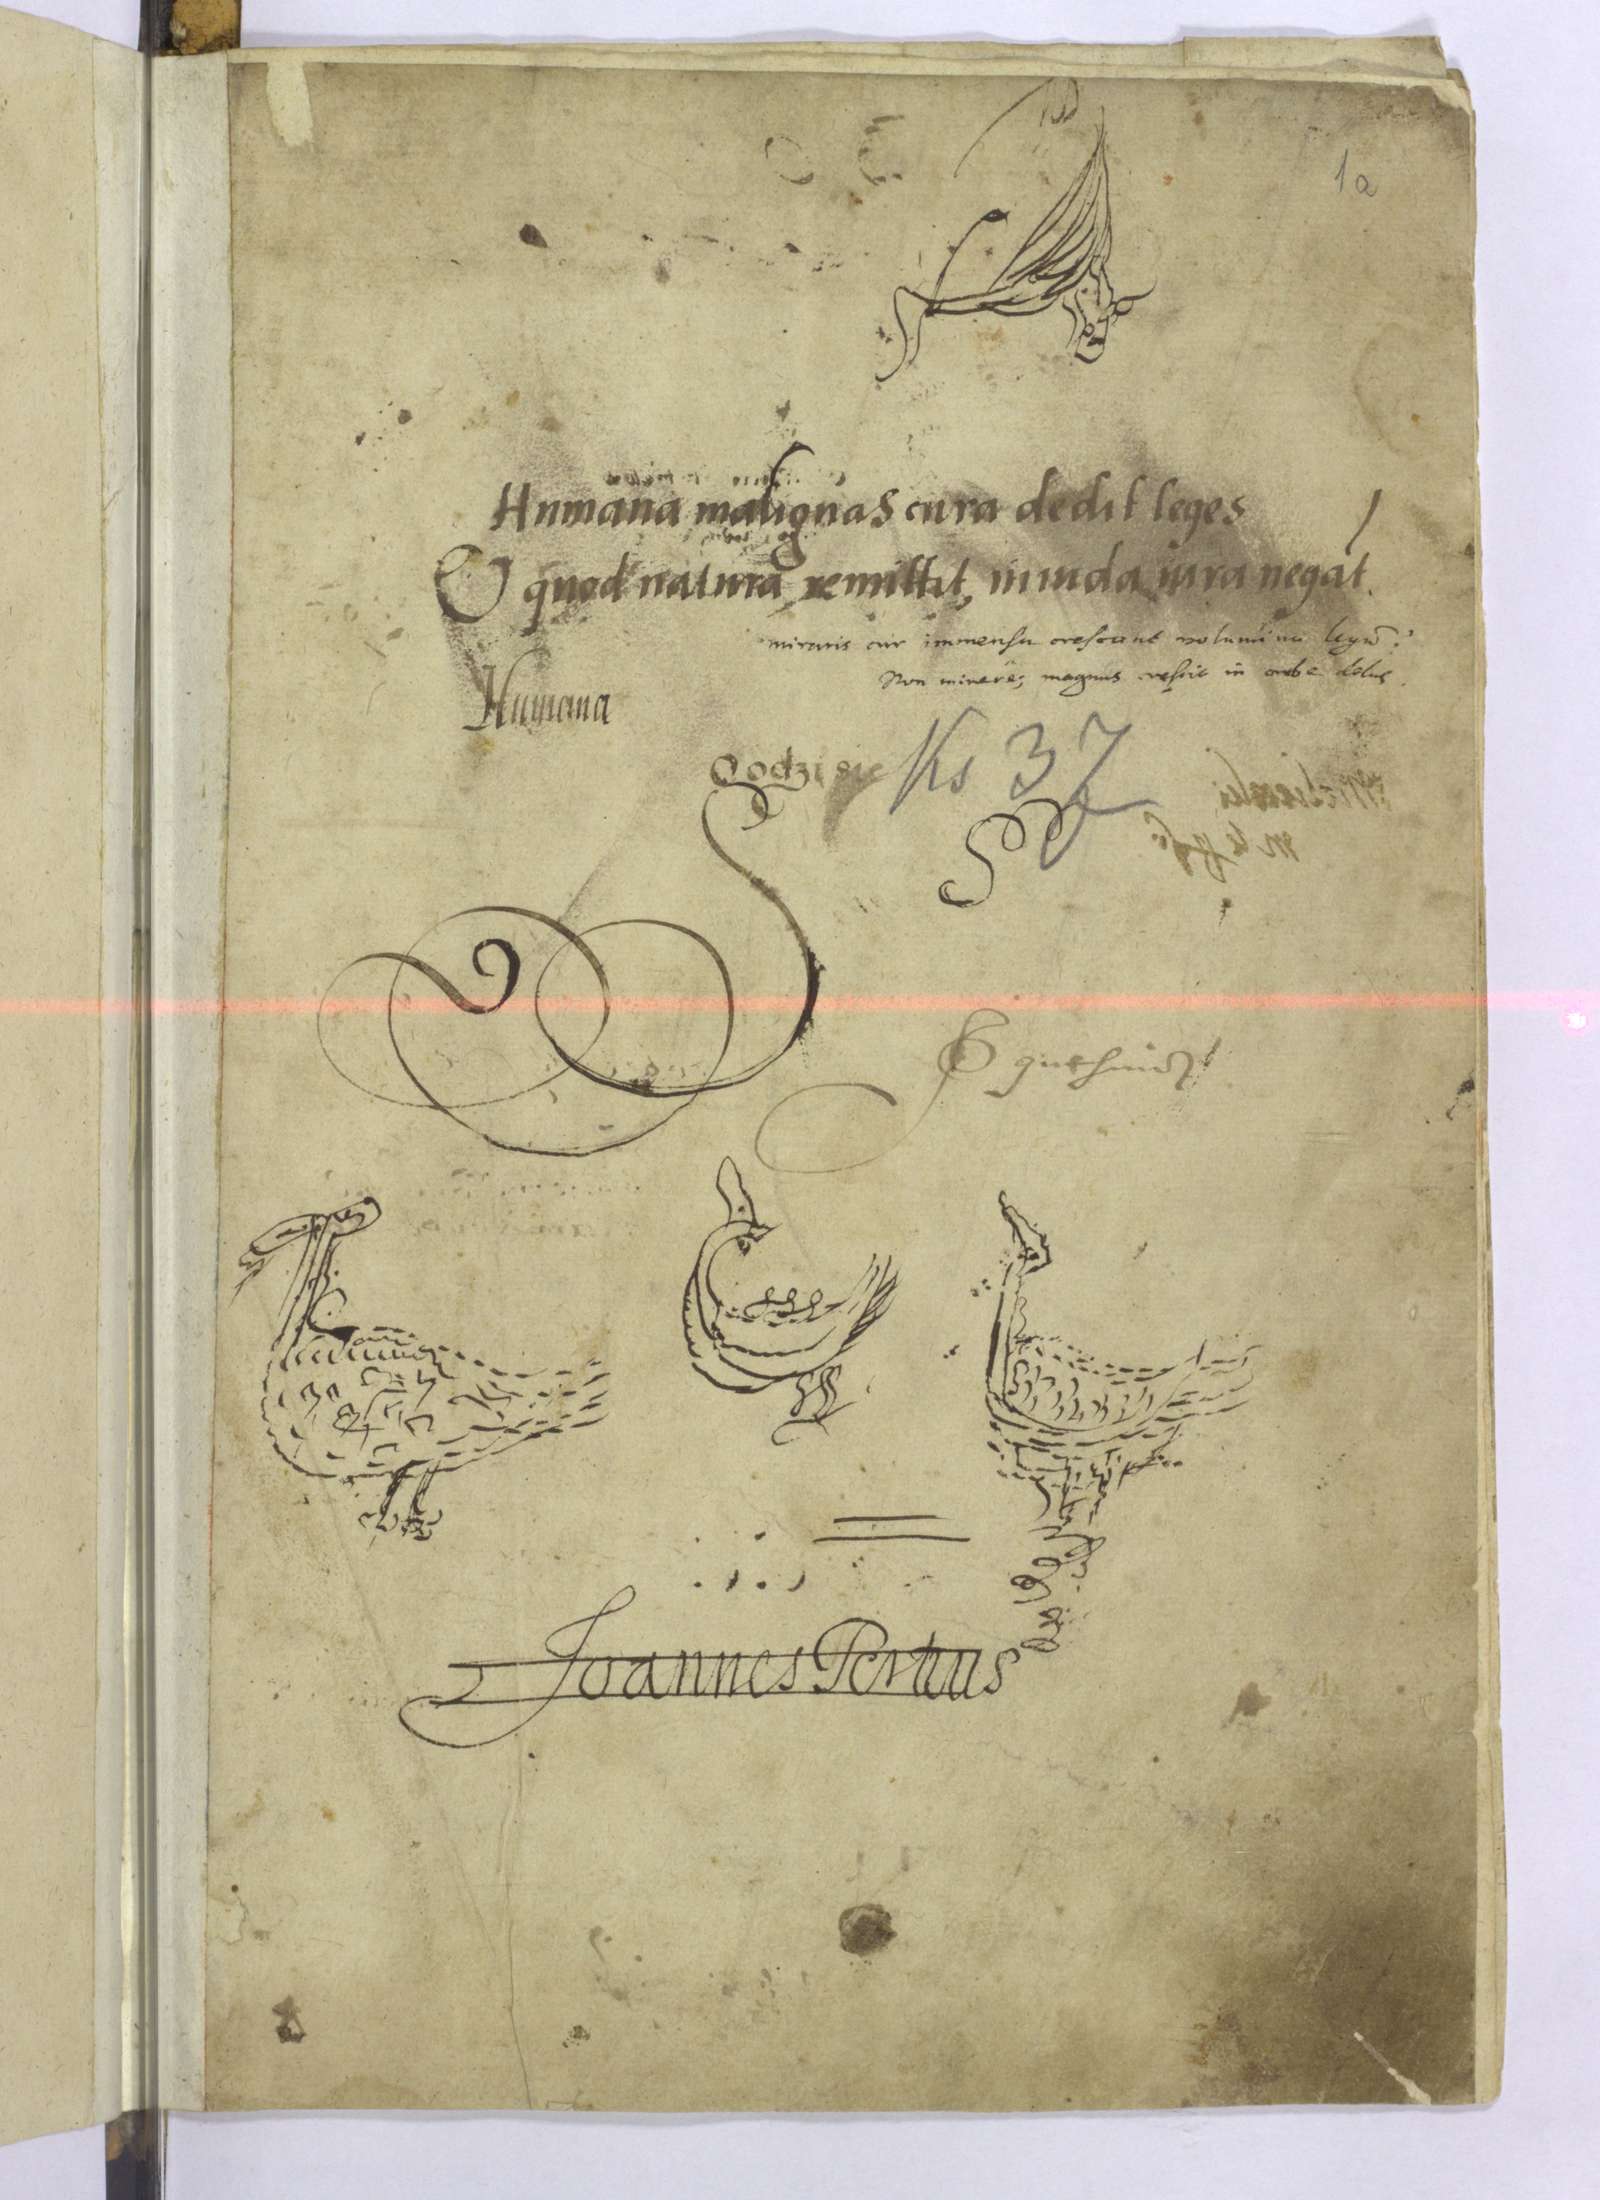 1a
Humana malignas cura dedit leges
Et quod natura remittit, inuida iura negat.
miraris cur immensa crescant volumina legū?
Non mirere; magnus crescit in orbe dolus.
Humana
Godzi sie
Ks 37
Joannes